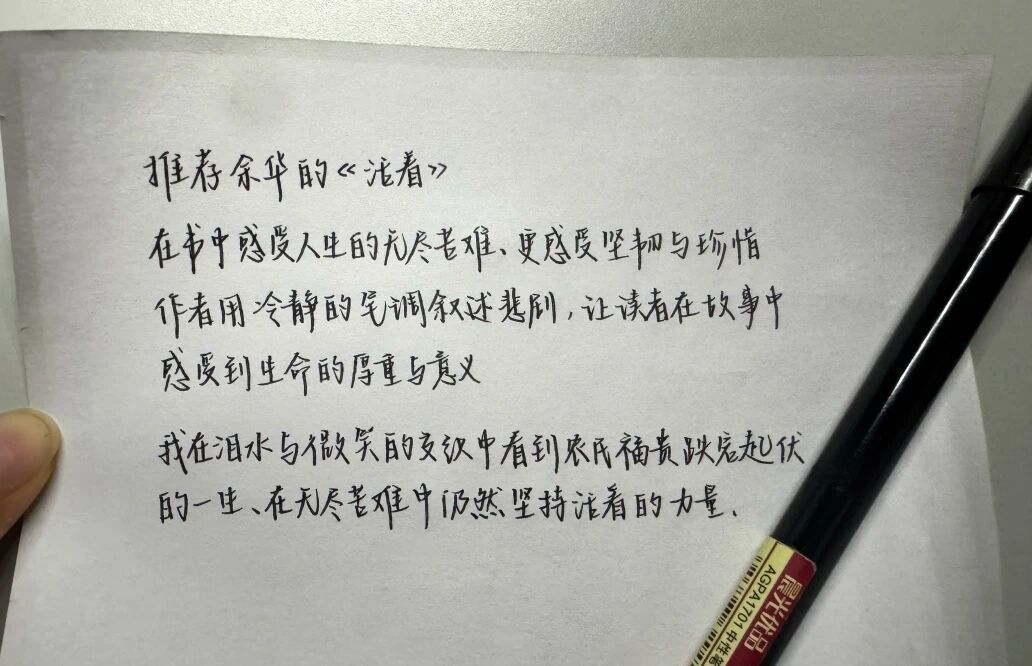 推荐余华的《活着》
在书中感受人生的无尽苦难、更感受坚韧与珍惜
作者用冷静的笔调叙述悲剧,让读者在故事中
感受到生命的厚重与意义
我在泪水与微笑的交织中看到农民福贵跌宕起伏
的一生、在无尽苦难中仍然坚持活着的力量.
晨光优品
AGPA1701 中性笔